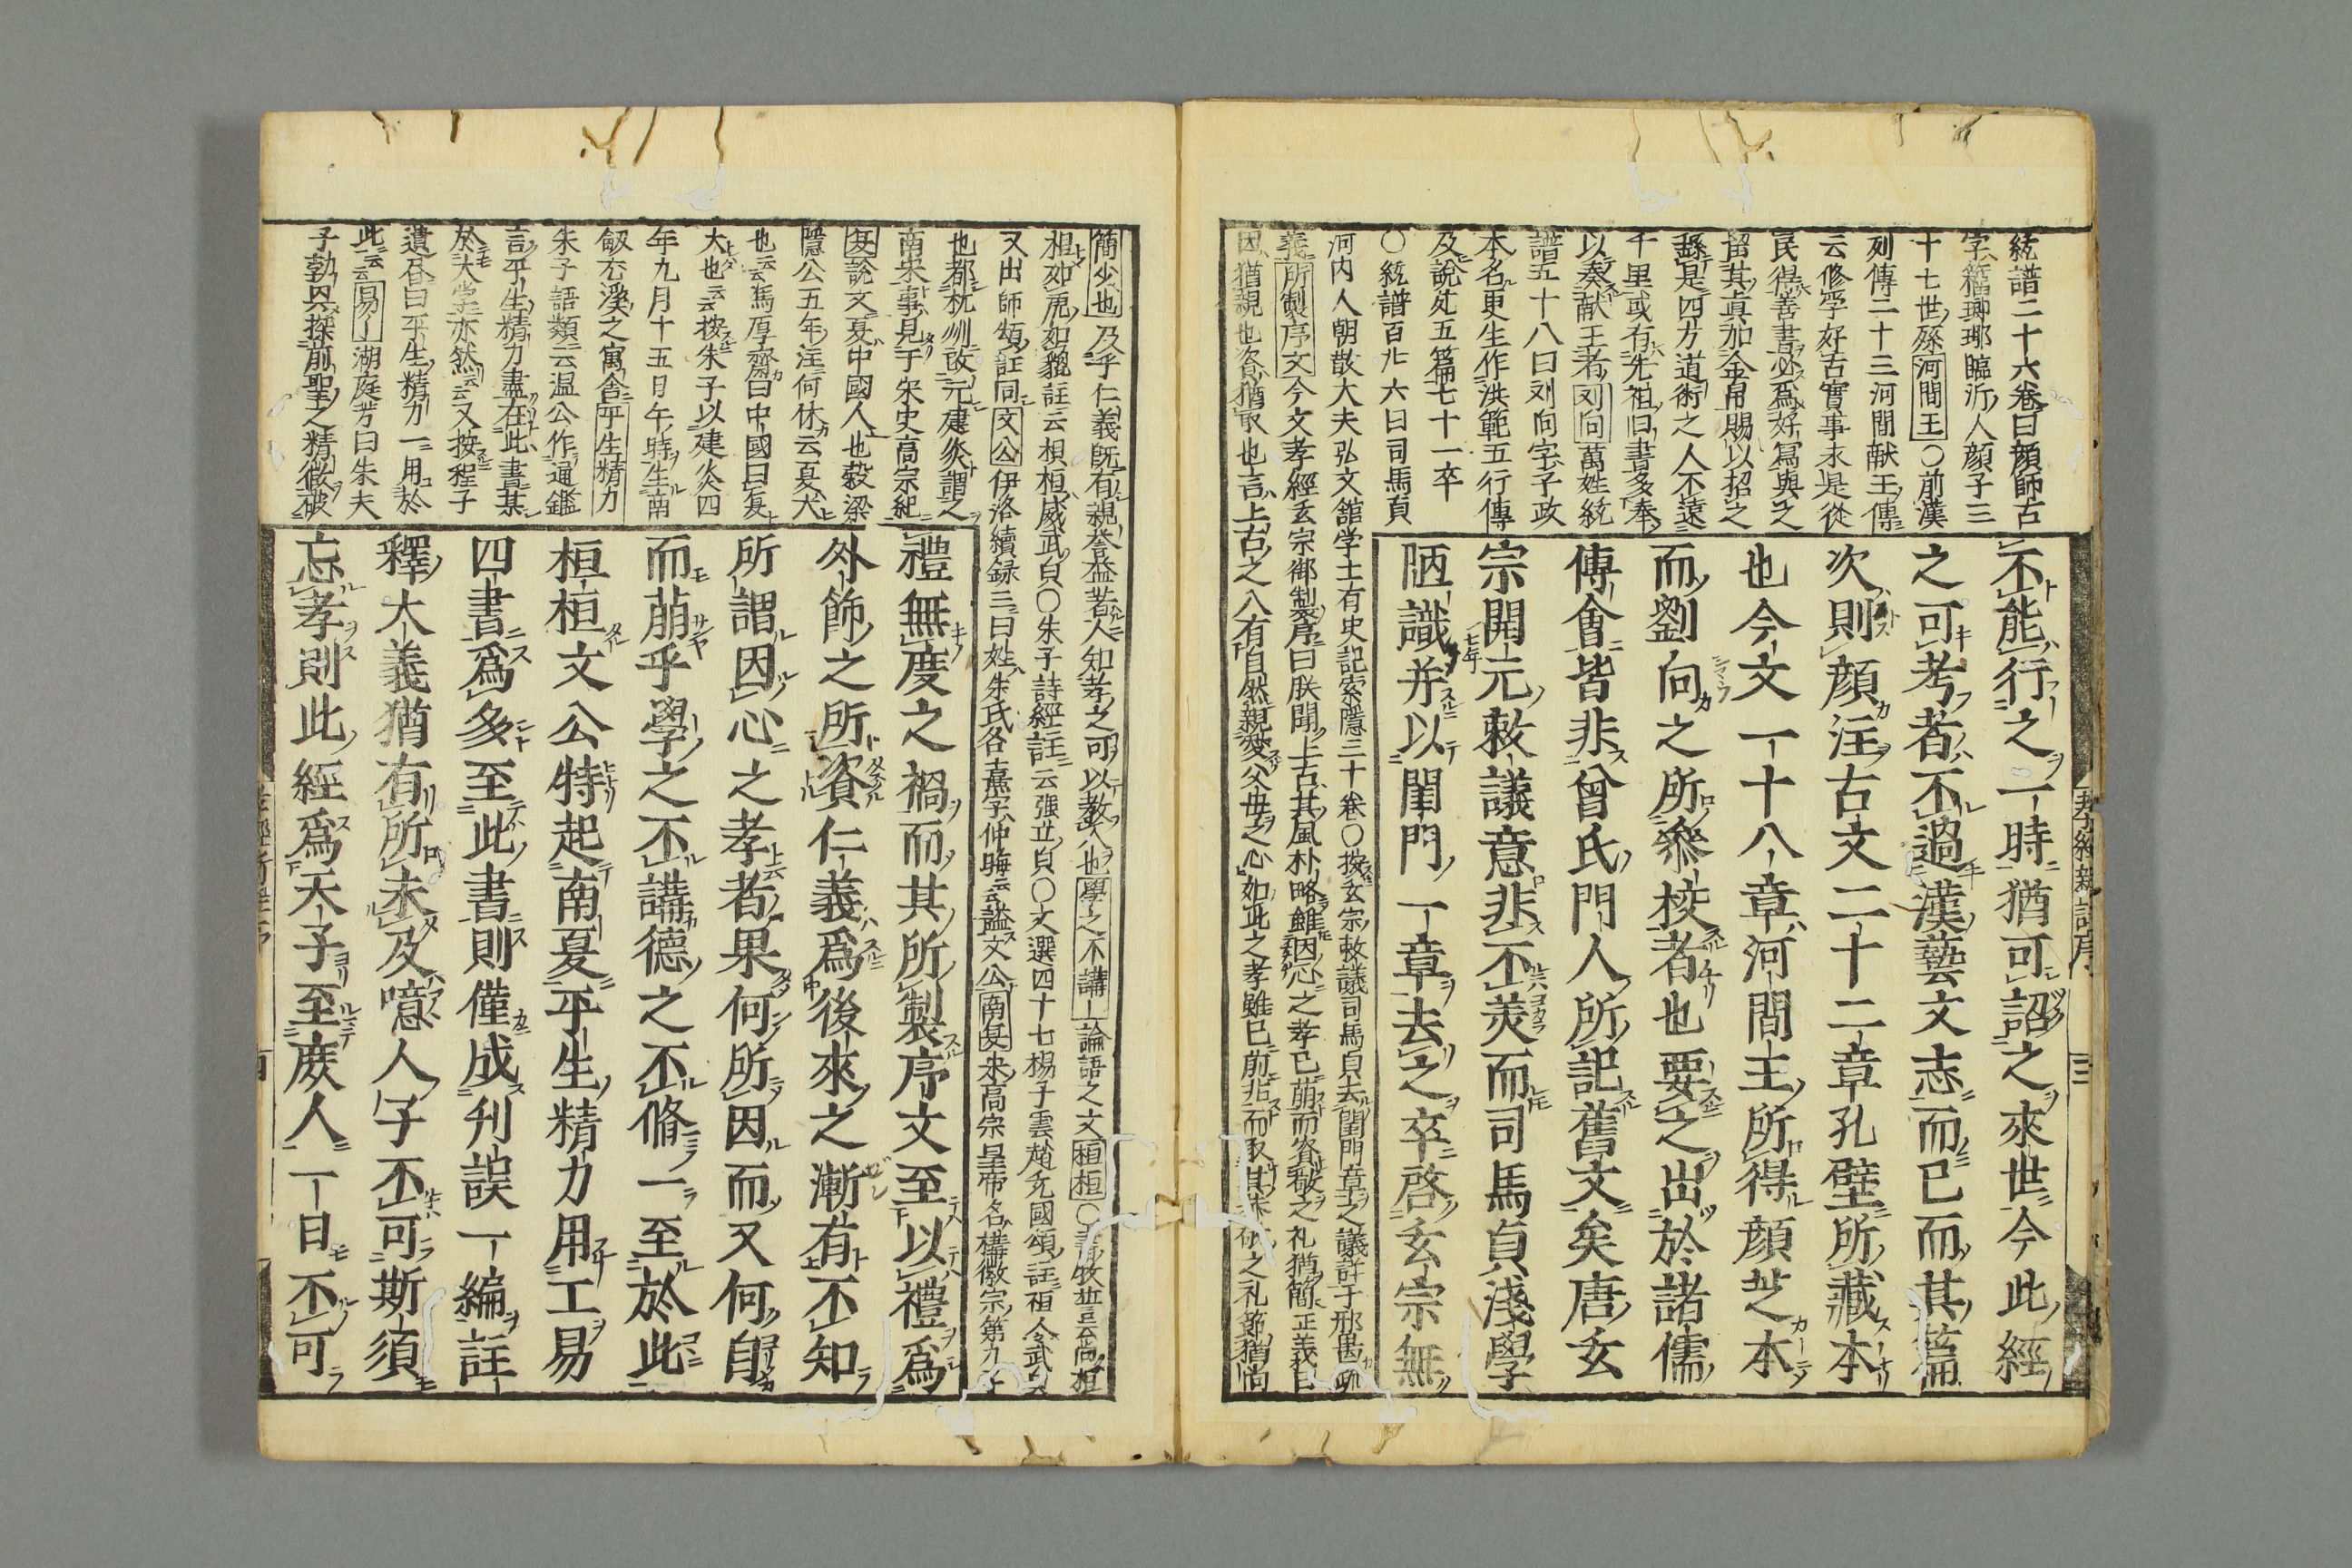 統譜二十六卷曰顔師古
字籀瑯琊臨沂人顔子三
十七世孫河間王〇前漢
列傳二十三河間献王傳
云修孛好古實事求是從
民得善書必爲好寫與之
留其真加金帛賜以招之
繇是四方道術之人不遠
千里或有先祖旧書多奉
以奏献王者刘向萬姓統
譜五十八曰刘向字子政
本名更生作洪範五行傳
及說苑五篇七十一卒
〇統譜百廿六曰司馬貞
河内人朝散大夫弘文舘学士有史記索隱三十卷〇按玄宗敕議司馬貞去閨門章之議詳于邢昺疏
義所製序文今文孝經玄宗御製序曰朕聞上古其風朴略雖因心之孝已萌而資敬之礼猶簡正義曰
因猶親也資猶取也言上古之人有自然親愛父母之心如此之孝雖已前萌而取其恭敬之礼節猶尚
不能行之一時猶可詔之來世今此經
之可考者不過漢藝文志而已而其篇
次則顔注古文二十二章孔壁所藏本
也今文一十八章河間王所得顔芝本
而劉向之所叅校者也要之出於諸儒
傳會皆非曾氏門人所記舊文矣唐玄
宗開元敕議意非不羙而司馬貞淺學
陋識并以閨門一章去之卒啓玄宗無
孝經新註序
三
簡少也及乎仁義既有親誉益著人知孝之可以教人也學之不講論語之文桓桓〇書牧誓云尚桓
桓如虎如貔註云桓桓威武皃〇朱子詩經註云强立皃〇文選四十七楊子雲趙充國頌註祖今武矣
又出師頌註同文公伊洛續録三曰姓朱氏名熹字仲晦云云諡文公南夏宋高宗皇帝名構徽宗第九子
也都杭州改元建炎謂之
南宋事見于宋史高宗紀
夏說文夏中國人也穀梁
隱公五年注何休云夏大
也云云馮厚齋曰中國曰夏
大也云云按朱子以建炎四
年九月十五日午時生南
劔尤溪之寓舍平生精力
朱子語類云温公作通鑑
言平生精力盡在此書某
於大學亦然云云又按程子
遺書曰平生精力一用於
此云云易湖庭芳曰朱夫
子勃興探前聖之精微破
禮無度之禍而其所製序文至以禮爲
外飾之所資仁義爲後來之漸有不知
所謂因心之孝者果何所因而又何自
而萠乎學之不講德之不修一至於此
桓桓文公特起南夏平生精力用工易
四書爲多至此書則僅成刋誤一編註
釋大義猶有所未及噫人子不可斯須
忘孝則此經爲天子至庶人一日不可